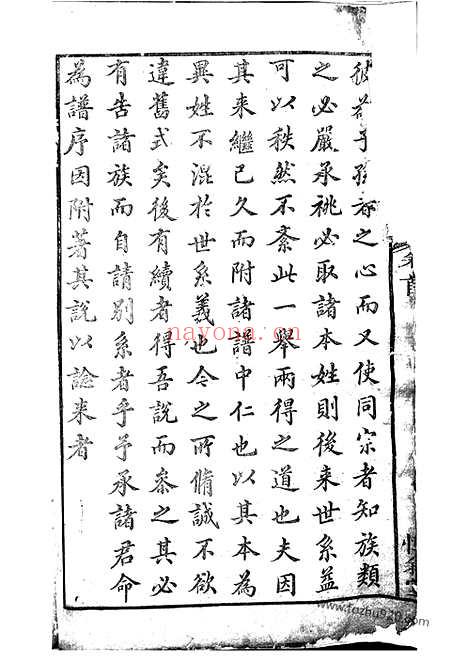 之心而又使同宗者知族類
之必嚴承祧必取諸本姓則後来世系益
可以秩然不紊此一舉兩得之道也夫因
其来繼已久而附諸譜中仁也以其本為
異姓不混於世系義也今之所脩誠不欲
違舊式矣後有續者得吾說而叅之其必
有告諸族而自請別系者乎予承諸君命
為譜序因附著其說以諗来者
nayong.cn
www.fozhu920.com